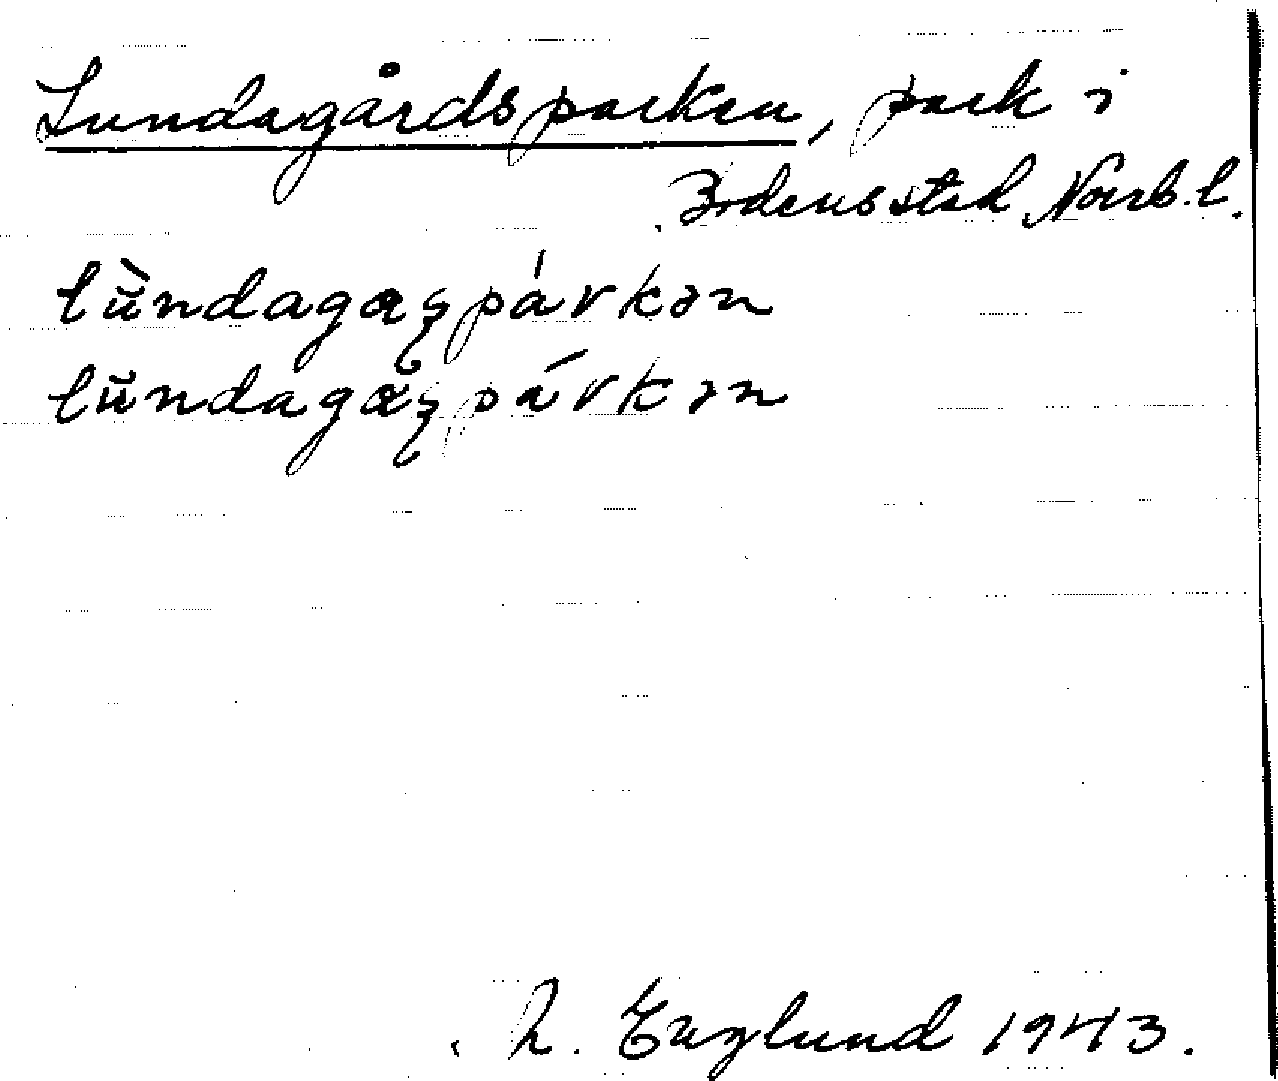 Lundagårdsparken, park i
Bodens stad Norrb. l.
lùndagaʂpárkən
lundagaʂpárkən
R. Englund 1943.